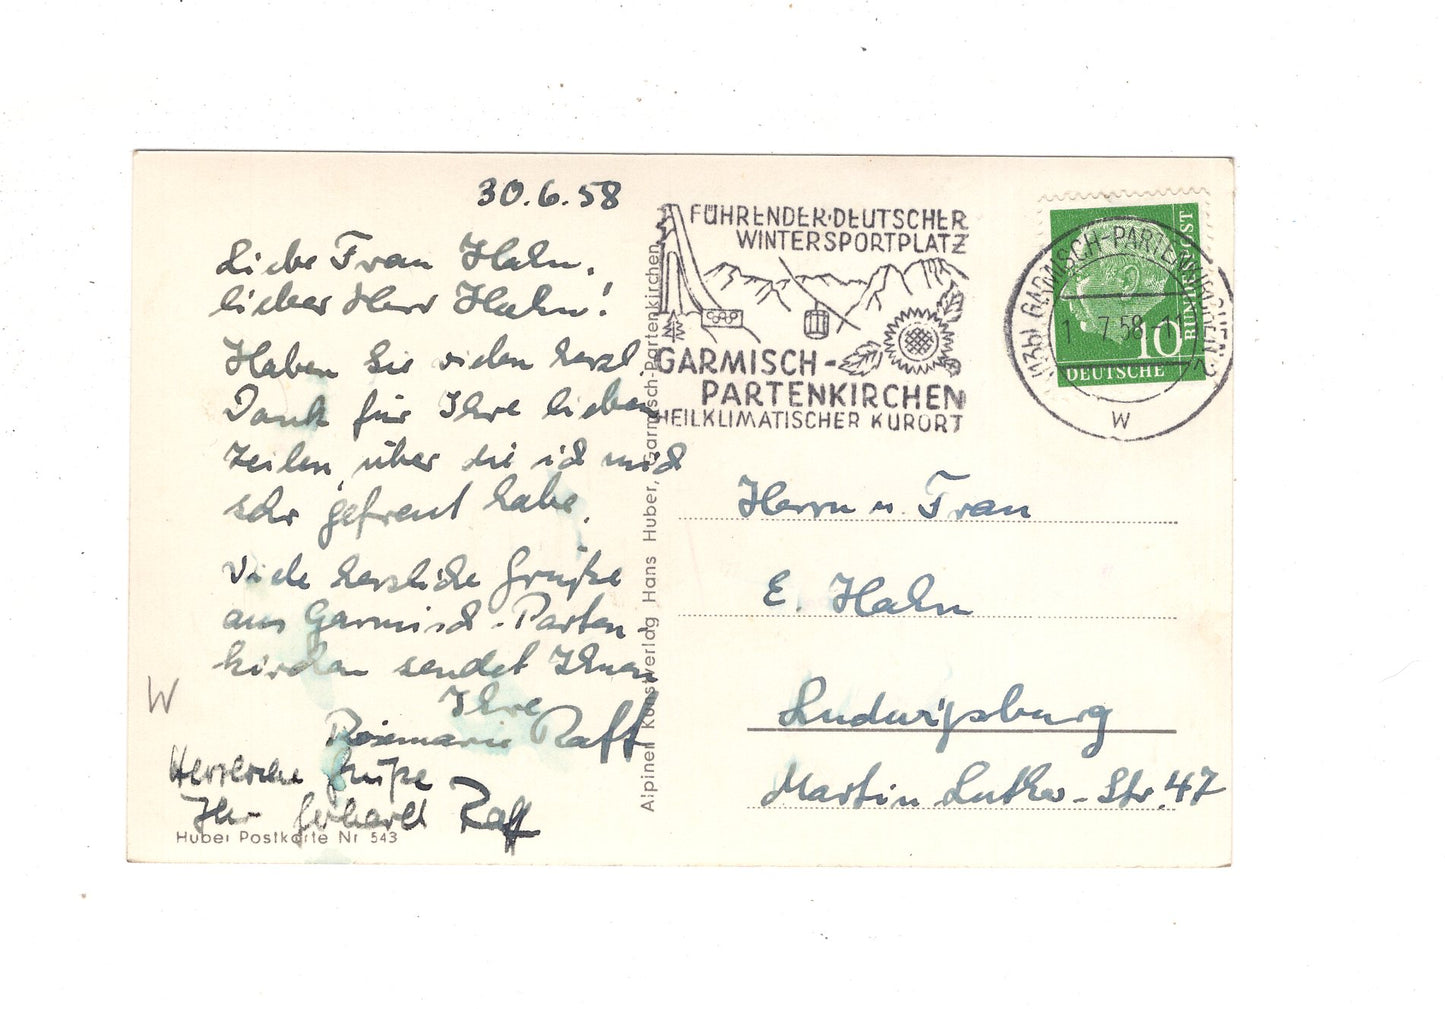 30.6.58
Liebe Frau Hahn,
lieber Herr Hahn!
Haben Sie vielen herzl.
Dank für Ihre lieben
Zeilen, über die ich mich
sehr gefreut habe.
Viele herzliche Grüße
aus Garmisch-Parten-
kirchen sendet Ihnen
Ihre
Rosemarie Raff
Herzliche Grüße
Ihr Gerhardt Raff
W
Huber Postkarte Nr 543
Alpiner Kunstverlag Hans Huber, Garmisch-Partenkirchen
FÜHRENDER·DEUTSCHER
WINTERSPORTPLATZ
GARMISCH-
PARTENKIRCHEN
HEILKLIMATISCHER KURORT
(13b) GARMISCH-PARTENKIRCHEN 2
1.7.58-11
W
DEUTSCHE
BUNDESPOST
10
Herrn u. Frau
E. Hahn
Ludwigsburg
Martin Luther-Str. 47